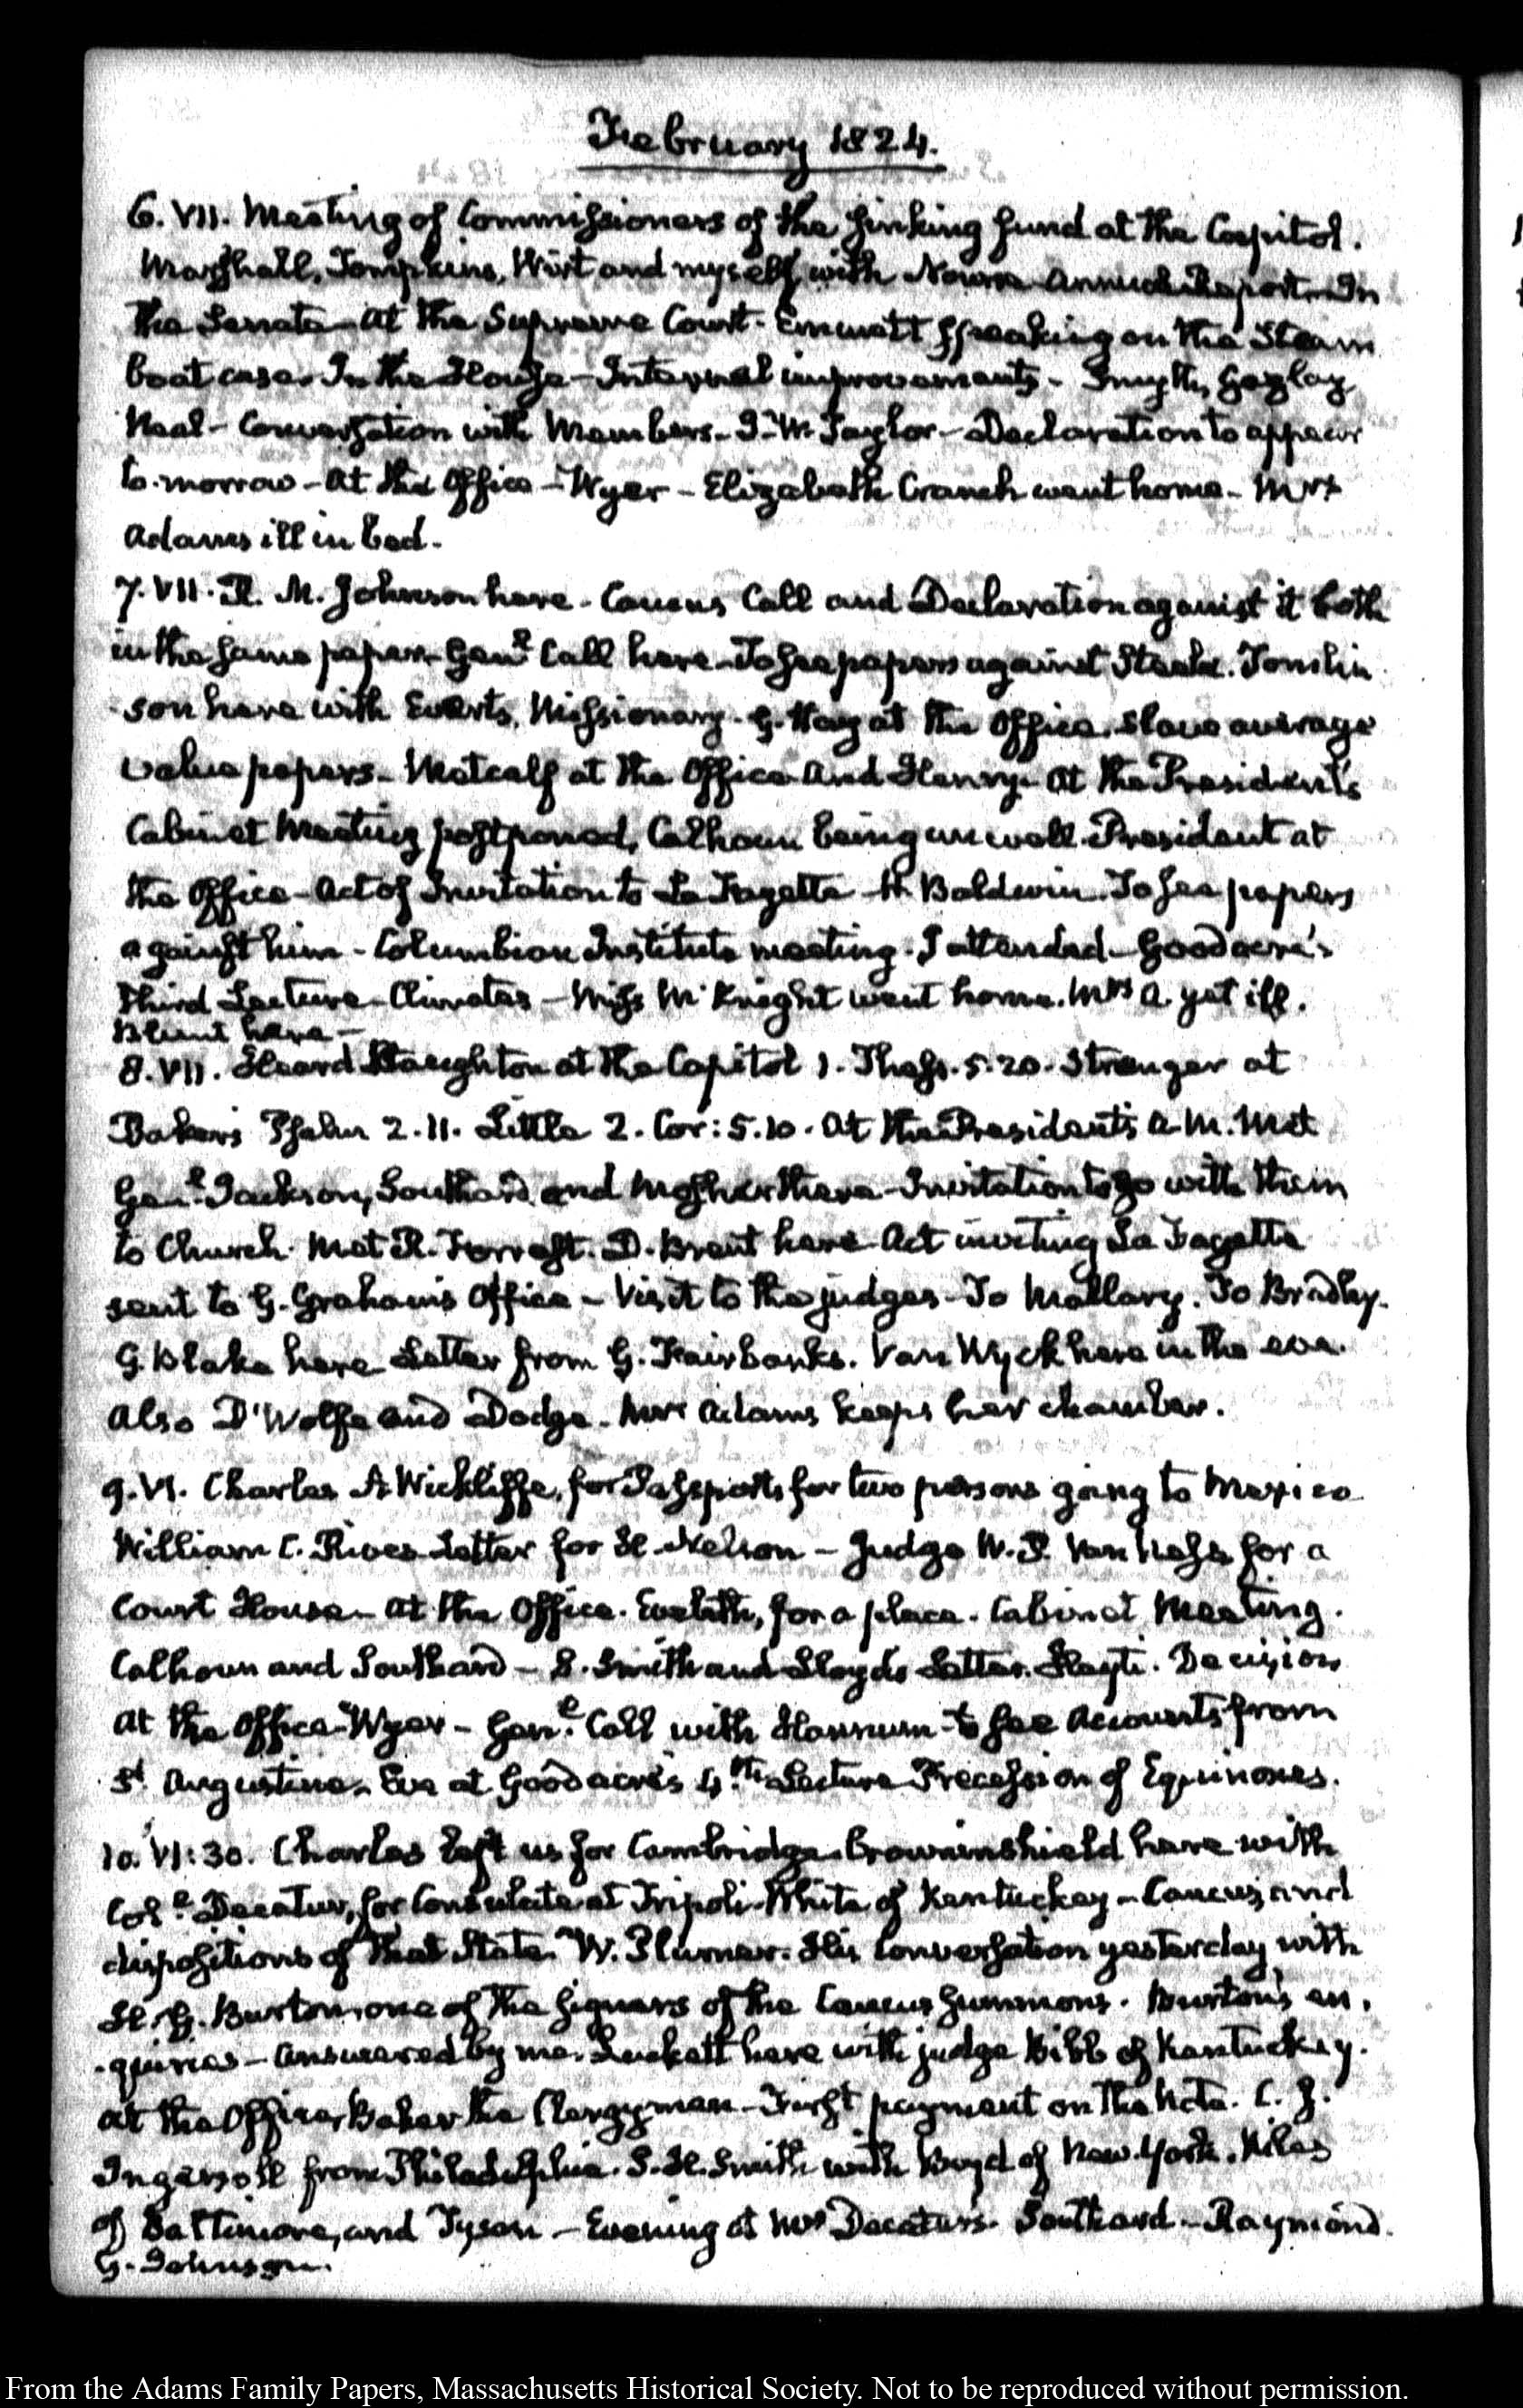 February 1824.
6. VII. Meeting of Commissioners of the sinking fund at the Capitol.
Marshall, Tompkins, Wirt and myself, with Nourse annual Report. In
the Senate – At the Supreme Court. Emmett speaking on the Steam
boat case. In the House – Internal improvements. Smyth, Gazlay
Neal – Conversation with Members – J. W. Taylor – Declaration to appear
to-morrow – At the Office – Wyer – Elizabeth Cranch went home. Mrs
Adams ill in bed.
7. VII. R. M. Johnson here. Caucus Call and Declaration against it both
in the same paper. Genl. Call here. To see papers against Steele. Tomlin
son here with Evarts, Missionary. G. Hay at the Office. Slave average
value papers – Metcalf at the Office and Henry. At the President's
Cabinet Meeting postponed, Calhoun being unwell. President at
the Office – Act of Invitation to La Fayette – H. Baldwin. To see papers
against him – Columbian Institute meeting. I attended – Goodacre's
Third Lecture – Climates – Miss McKnight went home. Mrs A. yet ill.
Blunt here –
8. VII. Heard Staughton at the Capitol 1. Thess. 5.20. Stranger at
Baker's Psalm 2.11. Little 2. Cor: 5.10. At the President's A.M. Met
Genl. Jackson, Southard and Mosher there – Invitation to go with them
to Church. Met R. Forrest. D. Brent here – Act inviting La Fayette
sent to G. Graham's Office – Visit to the judges – To Mallary. To Bradley.
G. Blake here Letter from G. Fairbanks. Van Wyck here in the eve.
Also D'Wolfe and Dodge. Mrs Adams keeps her chamber.
9. VI. Charles A Wickliffe, for Passports for two persons going to Mexico
William C. Rives Letter for H. Nelson – Judge W. P. Van Ness for a
Court House – At the Office. Eveleth, for a place. Cabinet Meeting.
Calhoun and Southard – S. Smith and Lloyd's Letter. Hayti. Decision
At the Office – Wyer – Genl. Call with Hannum to see Accounts from
St. Augustine. Eve at Goodacre's 4th. Lecture Precession of Equinoxes.
10. VI:30. Charles left us for Cambridge. Crowninshield here with
Coll. Decatur, for Consulate at Tripoli. White of Kentuckey – Caucus and
dispositions of that State. W. Plumer. His Conversation yesterday with
H. G. Burton, one of the signers of the Caucus summons. Burton's en-
-quiries – answered by me. Luckett here with judge Bibb of Kentuckey.
At the Office, Baker the Clergyman – First payment on the Note. C. J.
Ingersoll from Philadelphia. S. H. Smith with Boyd of New-York. Niles
of Baltimore, and Tyson – Evening at Mrs Decatur's. Southard – Raymond.
G. Johnson.
From the Adams Family Papers, Massachusetts Historical Society. Not to be reproduced without permission.